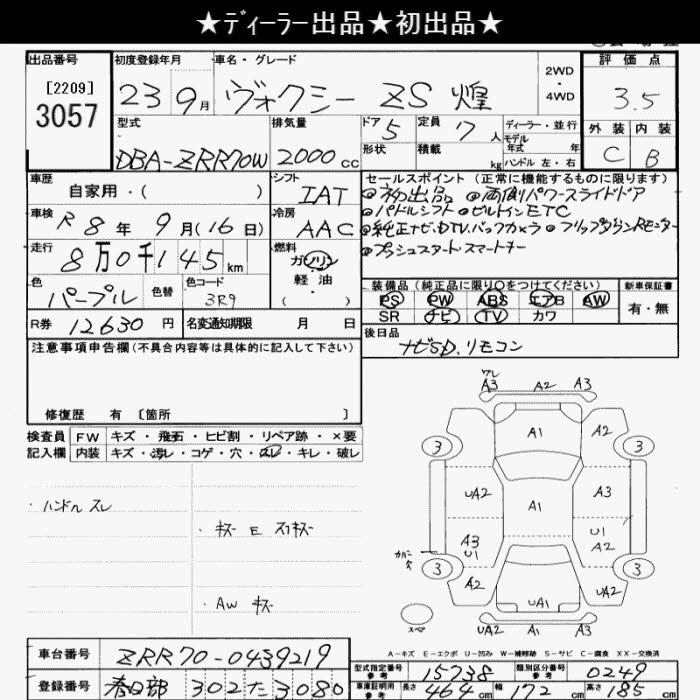 ★ディーラー出品★初出品★
出品番号
[2209]
3057
初度登録年月
23 9月
車名・グレード
ヴォクシー ZS 煌
2WD
・
4WD
評価点
3.5
外装 内装
C B
型式
DBA-ZRR70W
排気量
2000 cc
ドア 5
定員 7 人
形状
積載 kg
ディーラー・並行
モデル年式 年
ハンドル 左・右
車歴
自家用・( )
シフト
IAT
車検 R 8年 9月(16日)
冷房
AAC
走行
8万0千145km
燃料
ガソリン
軽油
・
( )
色
パープル
色替
色コード
3R9
R券 12630 円
名変通知期限 月 日
セールスポイント(正常に機能するものに限ります)
◎初出品 ◎両側パワースライドドア
◎パドルシフト ◎ビルトインETC
◎純正ナビ・DTV.バックカメラ ◎フリップダウンRモニター
◎プッシュスタート・スマートキー
装備品(純正品に限り○をつけてください)
PS PW ABS エアB AW
SR ナビ TV カワ
新車保証書
有・無
後日品
ナビSD.リモコン
注意事項申告欄(不具合内容等は具体的に記入して下さい)
修復歴 有 〔箇所 〕
検査員記入欄
FW キズ・飛石・ヒビ割・リペア跡・×要
内装 キズ・汚レ・コゲ・穴・スレ・キレ・破レ
・ハンドル スレ
・キズ E スリキズ
・AW キズ
ワレ
A3 A2 A3
A1 A2
3 3
UA2 A1 A3
A3 U1 U1 A2
カバー 穴
3 3
A2 UA1 UA2
スペア
UA2 A1 A3
A-キズ E-エクボ U-凹み W-補修跡 S-サビ C-腐食 XX-交換済
車台番号 ZRR70-0439219
登録番号 春日部 302た3080
型式指定番号 参考 15738
類別区分番号 参考 0249
車庫証明用 参考 長さ 464 cm 幅 172 cm 高さ 185 cm